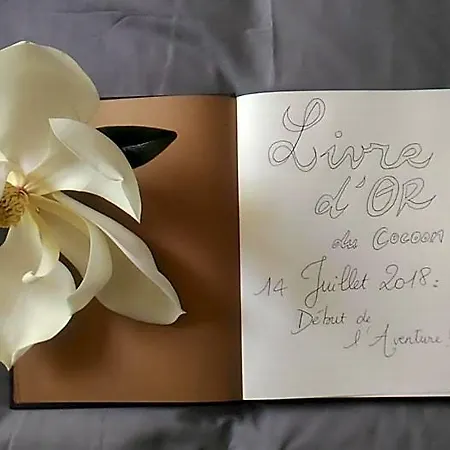 Livre
d'OR
du COCOON
14 Juillet 2018 :
Début de
l'Aventure !